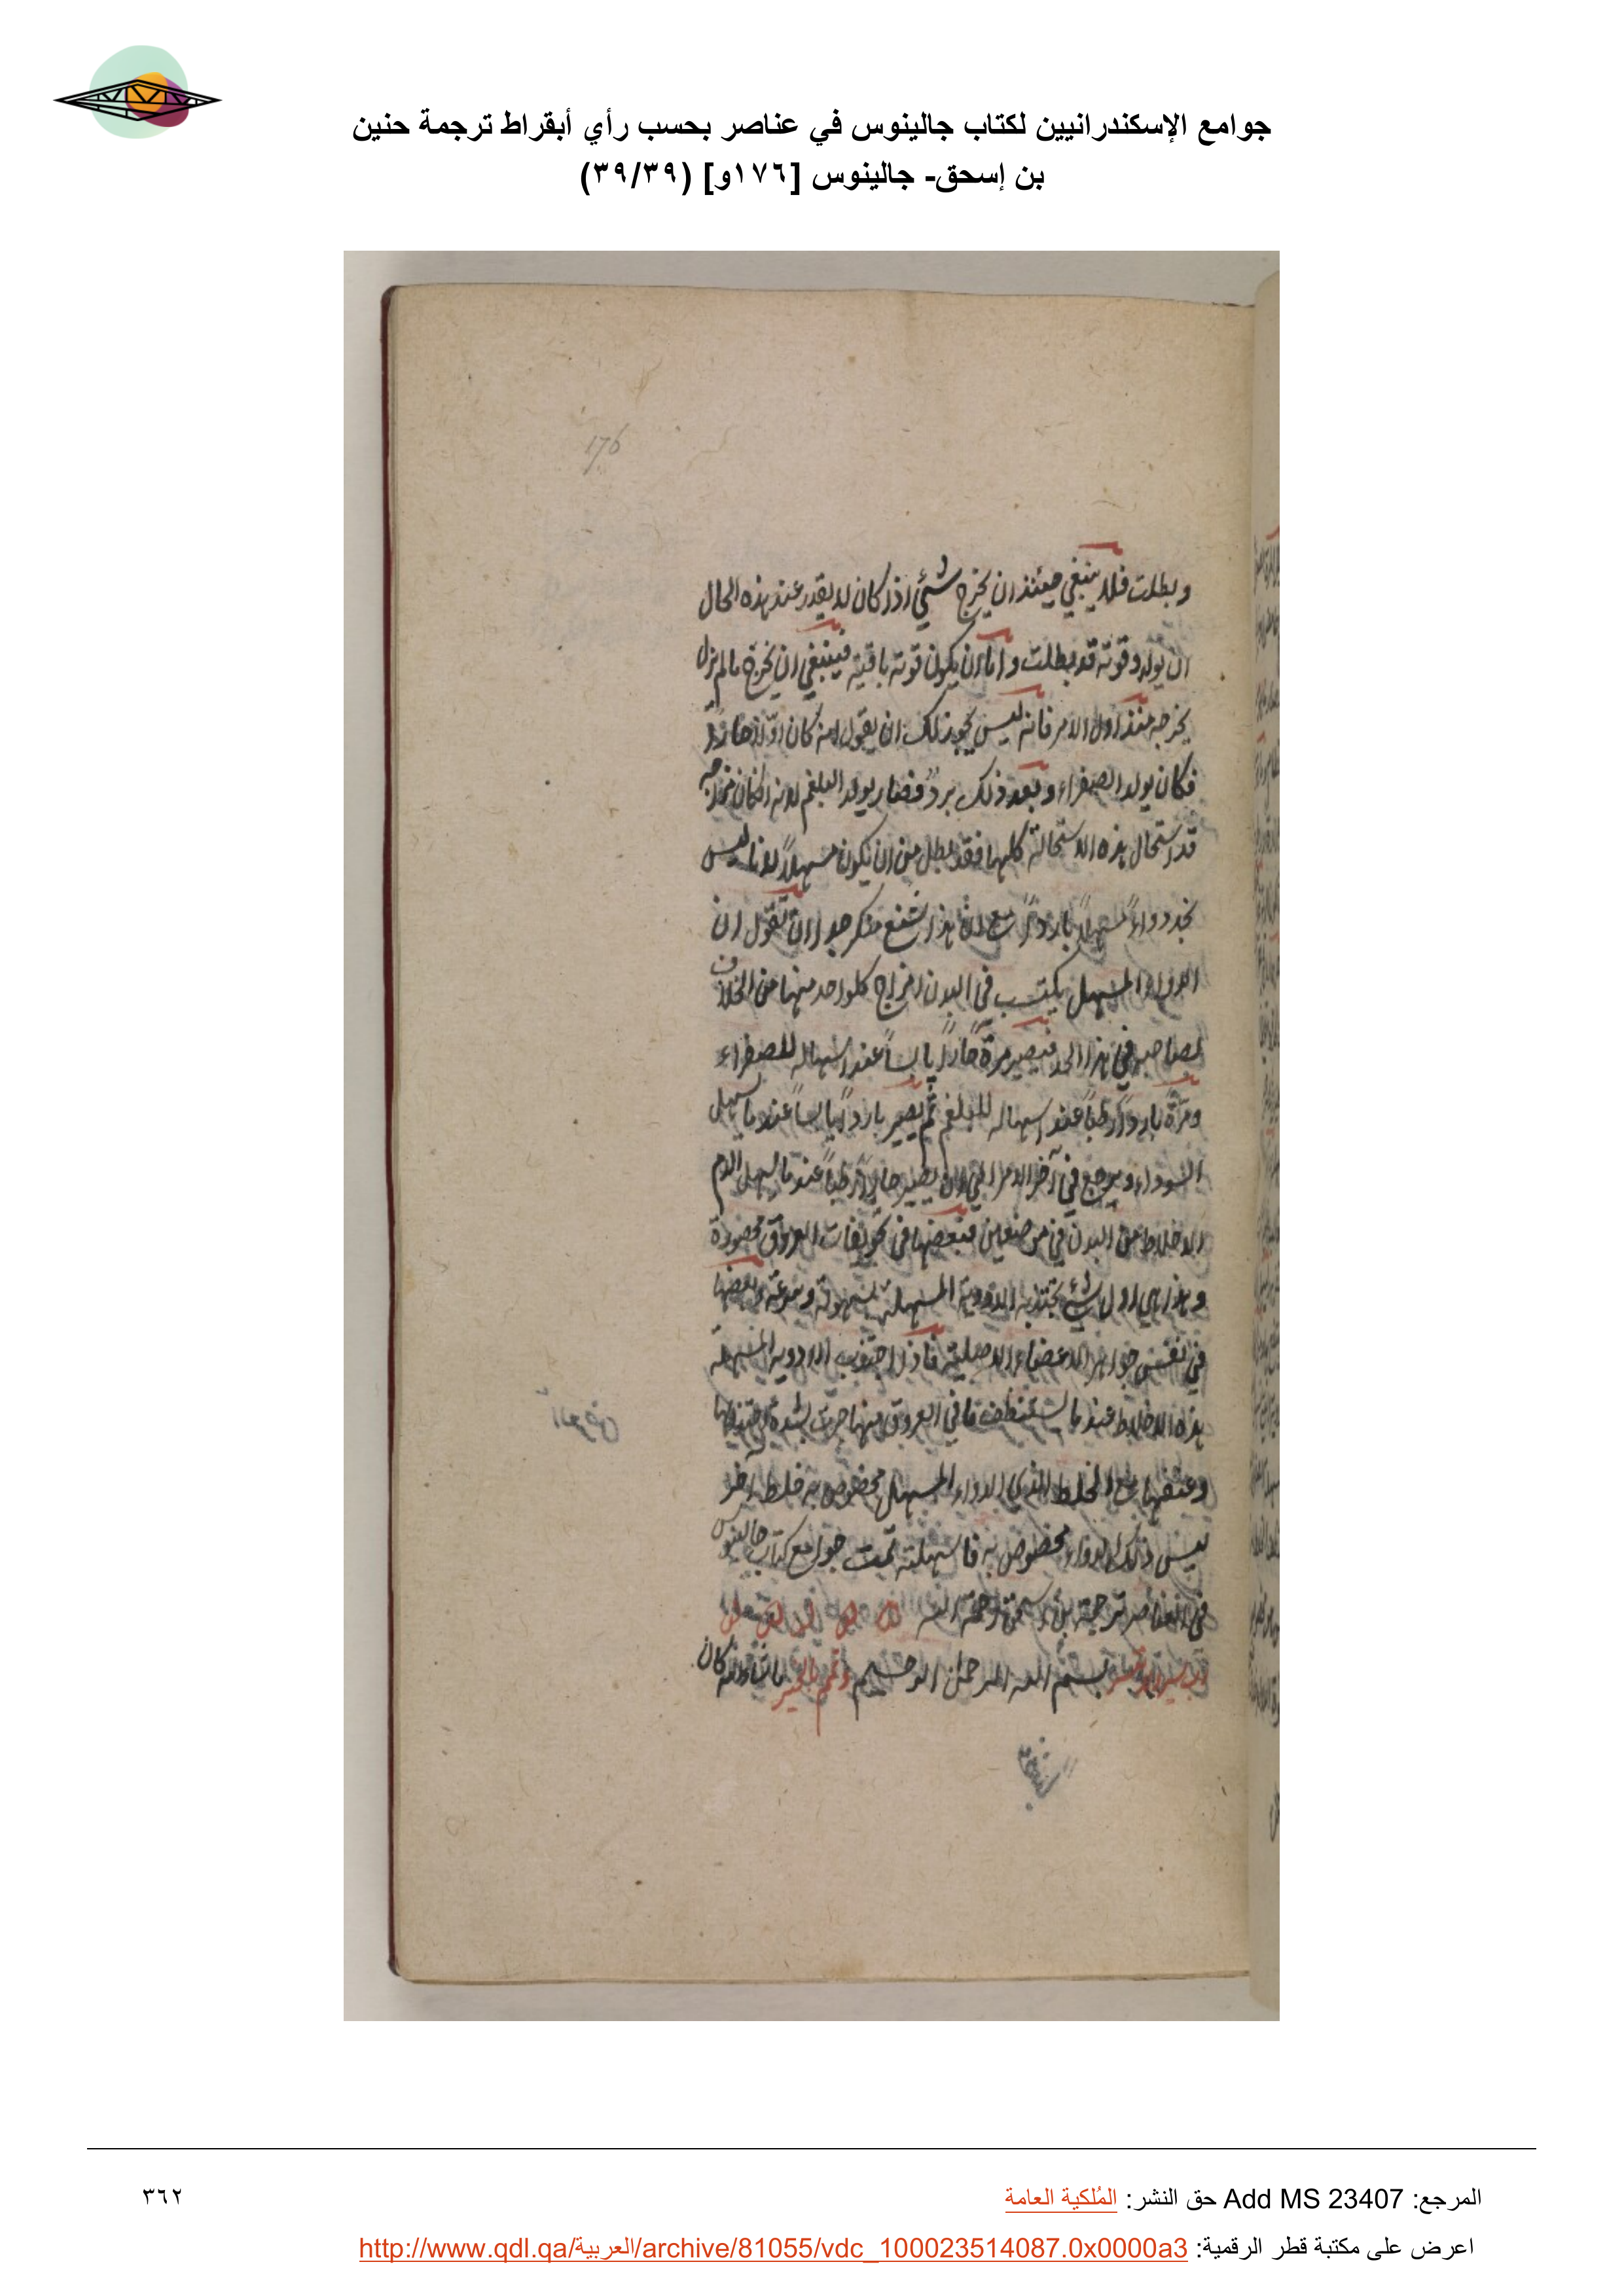 جوامع الإسكندرانيين لكتاب جالينوس في عناصر بحسب رأي أبقراط ترجمة حنين
بن إسحق- جالينوس [١٧٦و] (٣٩/٣٩)
176
وبطلت فلا ينبغي حينئذ ان يخرج شئي اذ كان لا يقدر عند هذه الحال
ان يولد وقوته قد بطلت واما ان يكون قوته باقية فينبغي ان يخرج ما لم يزل
يخرجه منذ اول الامر فانه ليس يجوز لك ان يقول انه كان اولا حارا
فكان يولد الصفراء وبعد ذلك برد فصار يولد البلغم لانه ان كان مزاجه
قد استحال هذه الاستحالة كلها فقد بطل من ان يكون مسهلاً لانا ليس
نجد دواءً مسهلاً بارداً مع ان هذا شنع منكر جدا ان تقول ان
الدواء المسهل يكتسب في البدن امزاج كلواحد منها من الخلاف
لصاحبه في هذا الحد فيصير مرة حاراً يابساً عند اسهاله للصفراء
ومرّة بارداً رطباً عند اسهاله للبلغم ثم يصير بارداً يابساً عند ما يسهل
السوداء ويرجع في آخر الامر الى ان يصير حاراً رطباً عند ما يسهل الدم
الاخلاط من البدن في موضعين فبعضها في تجويفات العروق محصورة
وهذا هي اول شئي تجتذبه الادوية المسهلة بسهولة وسرعة وبعضها
في نفس جواهر الاعضاء الاصلية فاذا اجتذبت الادوية المسهلة
هذه الاخلاط عند ما تستنظف ما في العروق منها جرت بشدة اجتذابها
وعنفها مع الخلط الذي الدواء المسهل مخصوص به خلط آخر
ليس ذلك الدواء مخصوص به فاسهلته تمت جوامع كتاب جالينوس
في العناصر ترجمة بن اسحق رحمة الله
بسم الله الرحمن الرحيم وتمم بالخير ما شاء الله كان
المرجع: Add MS 23407 حق النشر: المُلكية العامة
٣٦٢
اعرض على مكتبة قطر الرقمية: http://www.qdl.qa/العربية/archive/81055/vdc_100023514087.0x0000a3